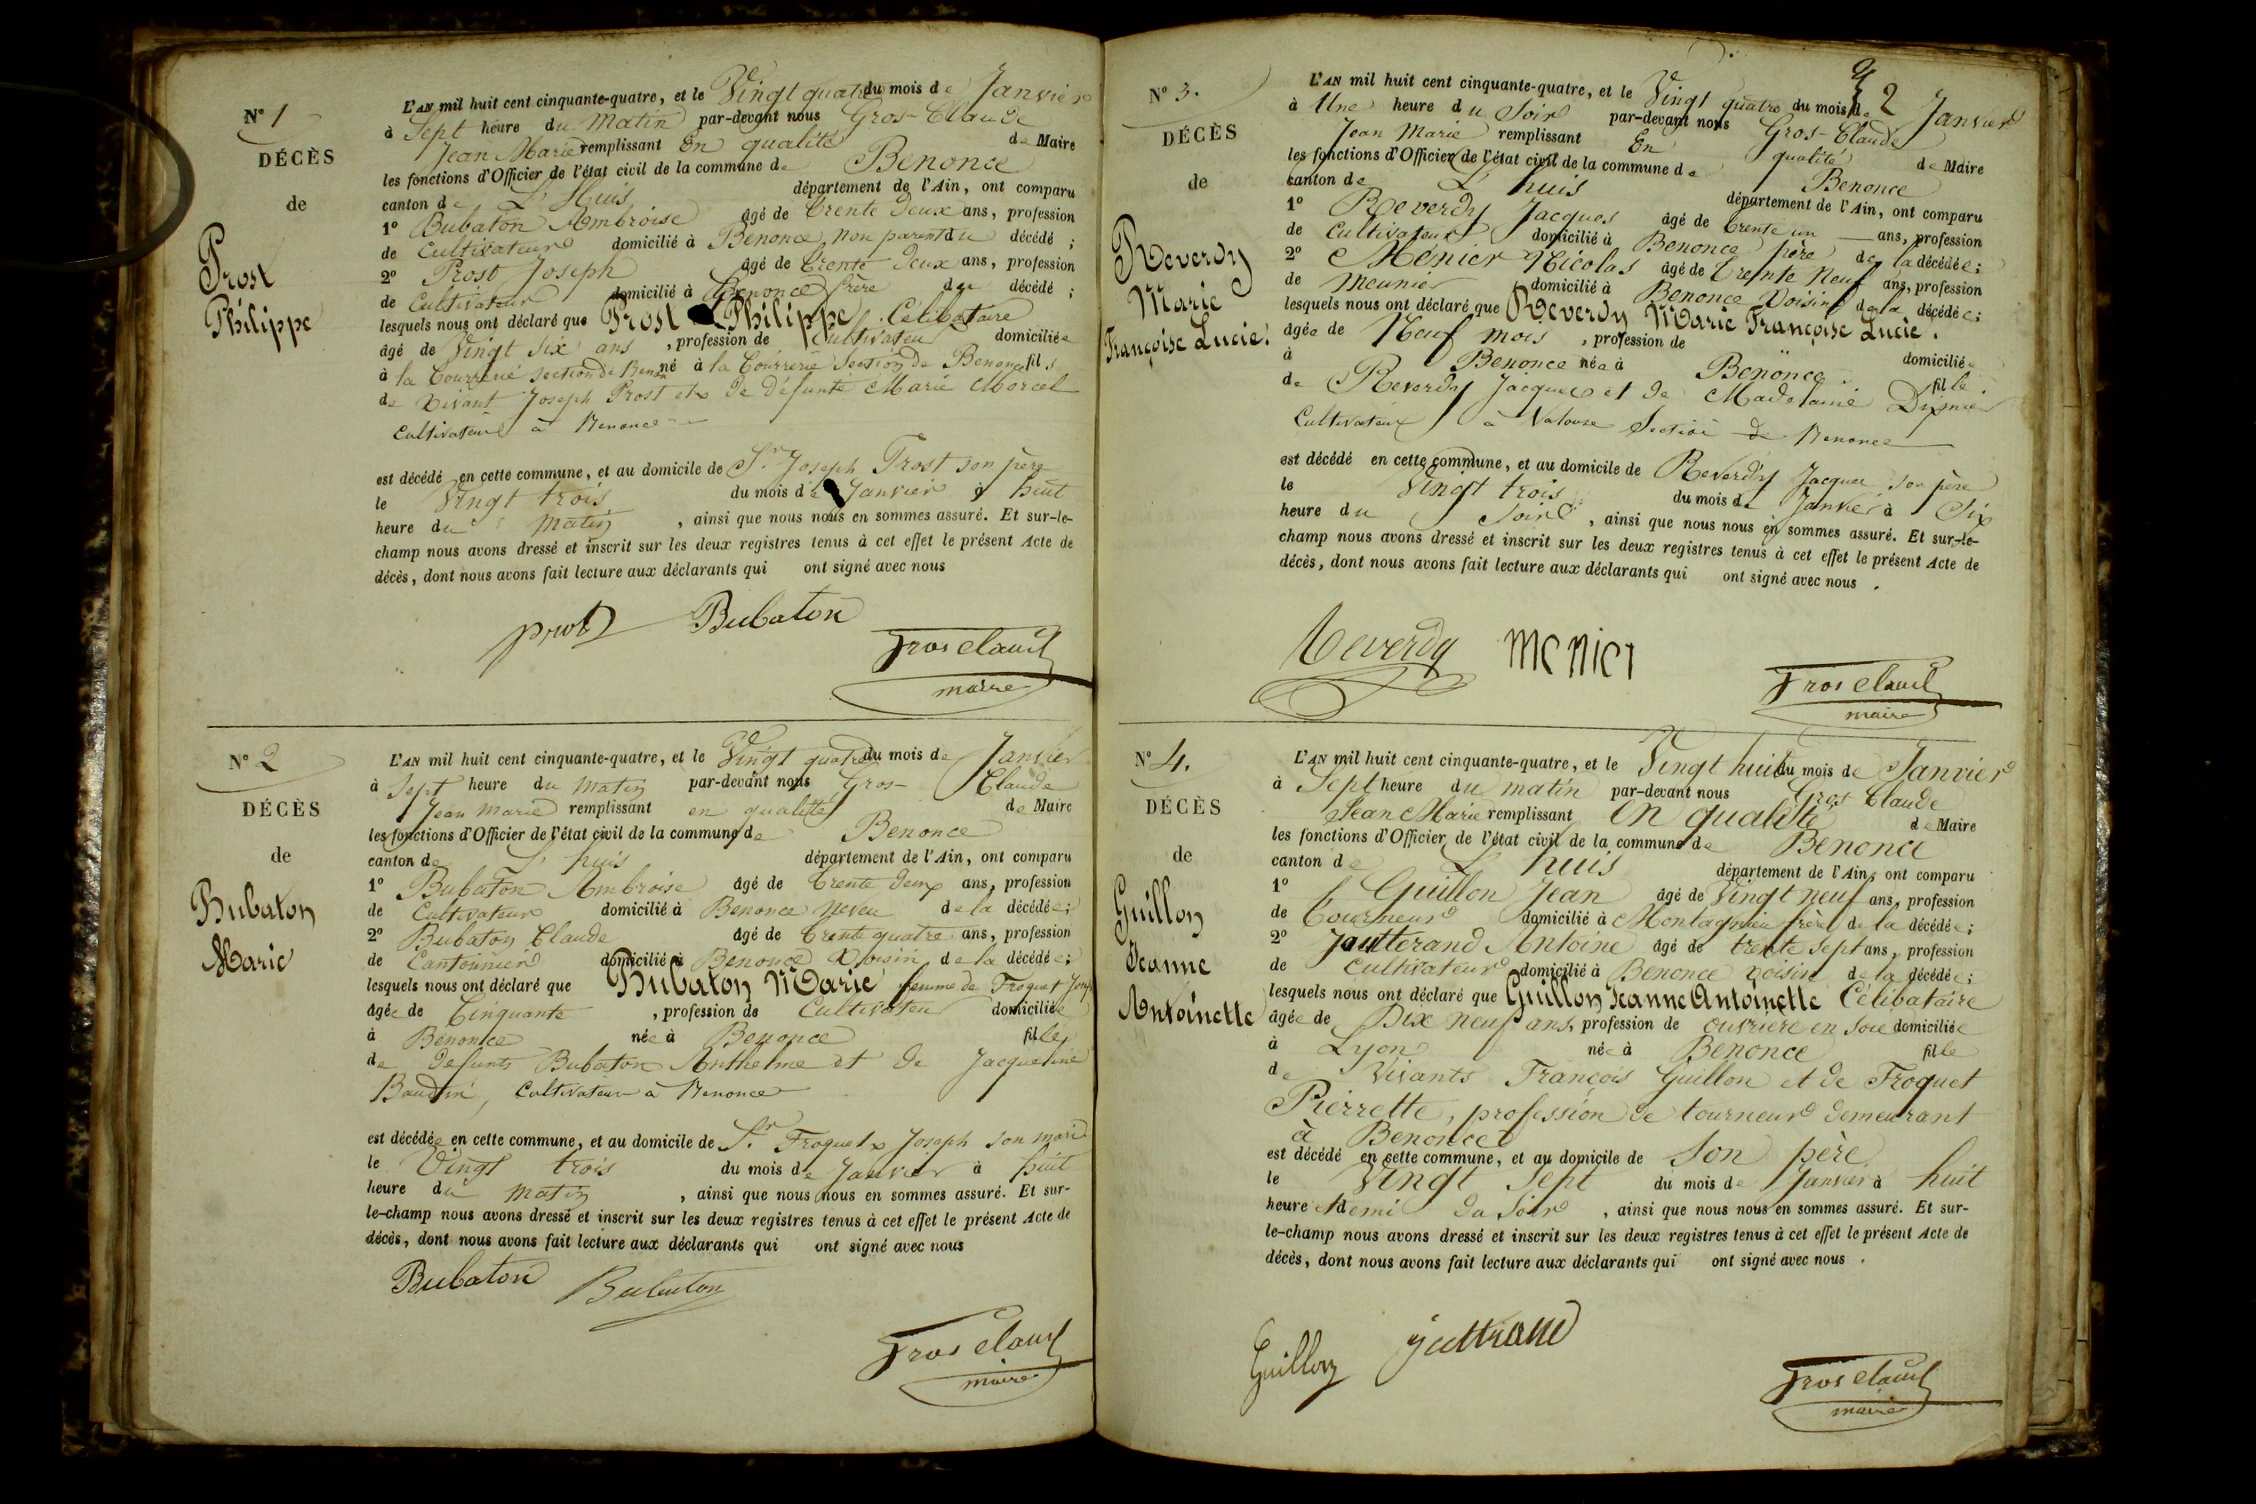 N° 1
DÉCÈS
de
Prost
Philippe
L'AN mil huit cent cinquante-quatre, et le Vingt quatre du mois de Janvier
à Sept heure du matin par-devant nous Gros-Claude
Jean Marie remplissant en qualité de Maire
les fonctions d'Officier de l'état civil de la commune de Benonce
canton de L'Huis département de l'Ain, ont comparu
1° Bubaton Ambroise âgé de trente deux ans, profession
de Cultivateur domicilié à Benonce non parent du décédé ;
2° Prost Joseph âgé de trente deux ans, profession
de Cultivateur domicilié à Benonce frère du décédé ;
lesquels nous ont déclaré que Prost Philippe Célibataire
âgé de Vingt Six ans , profession de Cultivateur domiciliée
à la Courrerie section de Benon né à la Courrerie Section de Benonce fils
de vivant Joseph Prost et de défunte Marie Morcel
Cultivateur à Benonce
est décédé en cette commune, et au domicile de Sr Joseph Prost son père
le Vingt trois du mois de Janvier à huit
heure du matin , ainsi que nous nous en sommes assuré. Et sur-le-
champ nous avons dressé et inscrit sur les deux registres tenus à cet effet le présent Acte de
décès, dont nous avons fait lecture aux déclarants qui ont signé avec nous
prost Bubaton
Gros Claude
maire
N° 2
DÉCÈS
de
Bubaton
Marie
L'AN mil huit cent cinquante-quatre, et le Vingt quatre du mois de Janvier
à Sept heure du matin par-devant nous Gros- Claude
Jean Marie remplissant en qualité de Maire
les fonctions d'Officier de l'état civil de la commune de Benonce
canton de L'huis département de l'Ain, ont comparu
1° Bubaton Ambroise âgé de trente deux ans, profession
de Cultivateur domicilié à Benonce neveu de la décédée ;
2° Bubaton Claude âgé de trente quatre ans, profession
de Cantonnier domicilié à Benonce Voisin de la décédée ;
lesquels nous ont déclaré que Bubaton Marie femme de Froquet Josep
âgée de Cinquante , profession de Cultivateur domiciliée
à Benonce née à Benonce fille
de defunts Bubaton Anthelme et de Jacqueline
Baudin, Cultivateur à Benonce
est décédée en cette commune, et au domicile de Sr Froquet Joseph son mari
le Vingt trois du mois de Janvier à huit
heure du matin , ainsi que nous nous en sommes assuré. Et sur-
le-champ nous avons dressé et inscrit sur les deux registres tenus à cet effet le présent Acte de
décès, dont nous avons fait lecture aux déclarants qui ont signé avec nous
Bubaton Bubaton
Gros Claude
maire
2
N° 3.
DÉCÈS
de
Reverdy
Marie
Françoise Lucie.
L'AN mil huit cent cinquante-quatre, et le Vingt quatre du mois de Janvier
à Une heure du Soir par-devant nous Gros-Claude
Jean Marie remplissant En qualité de Maire
les fonctions d'Officier de l'état civil de la commune de Benonce
canton de L'huis département de l'Ain, ont comparu
1° Reverdy Jacques âgé de trente un ans, profession
de Cultivateur domicilié à Benonce père de la décédée ;
2° Ménier Nicolas âgé de trente neuf ans, profession
de meunier domicilié à Benonce Voisin de la décédée ;
lesquels nous ont déclaré que Reverdy Marie Françoise Lucie.
âgée de Neuf mois , profession de domiciliée
à Benonce née à Benonce fille
de Reverdy Jacques et de Madelaine
Cultivateur à Valouse Section de Benonce
est décédé en cette commune, et au domicile de Reverdy Jacques son père
le Vingt trois du mois de Janvier à Six
heure du Soir , ainsi que nous nous en sommes assuré. Et sur-le-
champ nous avons dressé et inscrit sur les deux registres tenus à cet effet le présent Acte de
décès, dont nous avons fait lecture aux déclarants qui ont signé avec nous .
Reverdy Menier
Gros Claude
maire
N° 4.
DÉCÈS
de
Guillon
Jeanne
Antoinette
L'AN mil huit cent cinquante-quatre, et le Vingt huit du mois de Janvier
à Sept heure du matin par-devant nous Gros Claude
Jean Marie remplissant en qualité de Maire
les fonctions d'Officier de l'état civil de la commune de Benonce
canton de L'huis département de l'Ain, ont comparu
1° Guillon Jean âgé de Vingt neuf ans, profession
de Tourneur domicilié à Montagnieu frère de la décédée ;
2° Jutterand Antoine âgé de trente sept ans, profession
de Cultivateur domicilié à Benonce voisin de la décédée ;
lesquels nous ont déclaré que Guillon Jeanne Antoinette Célibataire
âgée de Dix neuf ans, profession de ouvrière en Soie domiciliée
à Lyon née à Benonce fille
de Vivants François Guillon et de Froquet
Pierrette, profession de tourneur demeurant
à Benonce
est décédé en cette commune, et au domicile de Son père
le Vingt Sept du mois de Janvier à huit
heure et demi du Soir , ainsi que nous nous en sommes assuré. Et sur-
le-champ nous avons dressé et inscrit sur les deux registres tenus à cet effet le présent Acte de
décès, dont nous avons fait lecture aux déclarants qui ont signé avec nous .
Guillon Jutterand
Gros Claude
maire